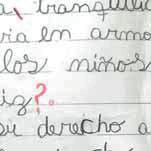 a tranquili
ria en armo
los niños
iz?
su derecho a